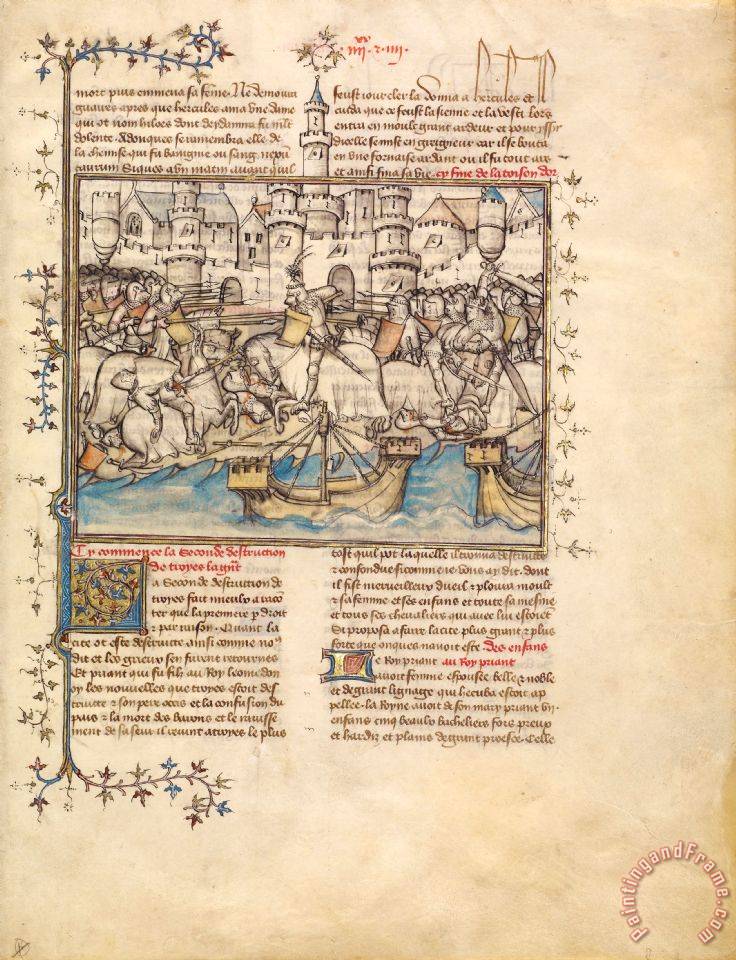 xx
iiii · r · iiii ·
mort puis emmena sa feme. Ne demoura
guaires apres que hercules ama une dame
qui ot nom hiolee dont deydamia fu mlt
dolente. Adonques se ramembra elle de
la chemise qui fu baignie ou sang
taurum Si ques a un matin avant quil
feust iour cler la donna a hercules et
cuida que ce feust la sienne et la vesti lors
entra en moult grant ardeur et pour
dicelle se mist en greigneur car il se bouta
en une fornaise ardant ou il fu tout ars
et ainsi fina sa vie cy fine de la toison dor
Cy commence la seconde destruction
de troyes la gnt
La seconde destruction de
troyes fait mieulx a raco
ter que la premiere par droit
et par raison. Quant la
cite ot este destruitte ainsi comme no9
dit et les grieux sen furent retournes
Et priant qui fu filz au Roy leomedon
oy les nouvelles que troyes estoit des
truitte et son pere occis et la confusion du
pais et la mort des barons et le ravisse
ment de sa seur il revint a troyes le plus
tost quil pot laquelle il trouva destruitte
et confondue si comme ie vous ay dit. dont
il fist merveilleux dueil et ploura moult
et sa femme et ses enfans et toute sa mesme
et tous ses chevaliers qui avec lui estoiet
Si proposa a faire la cite plus grant et plus
forte que onques navoit este. Des enfans
Le Roy priant au Roy priant
avoit femme espousee belle et noble
et de grant lignage qui hecuba estoit ap
pellee. la Royne avoit de son mary priant vij.
enfans cinq beaulx bacheliers fors preup
et hardiz et plains de grant proesce. Celle
PaintingandFrame.com